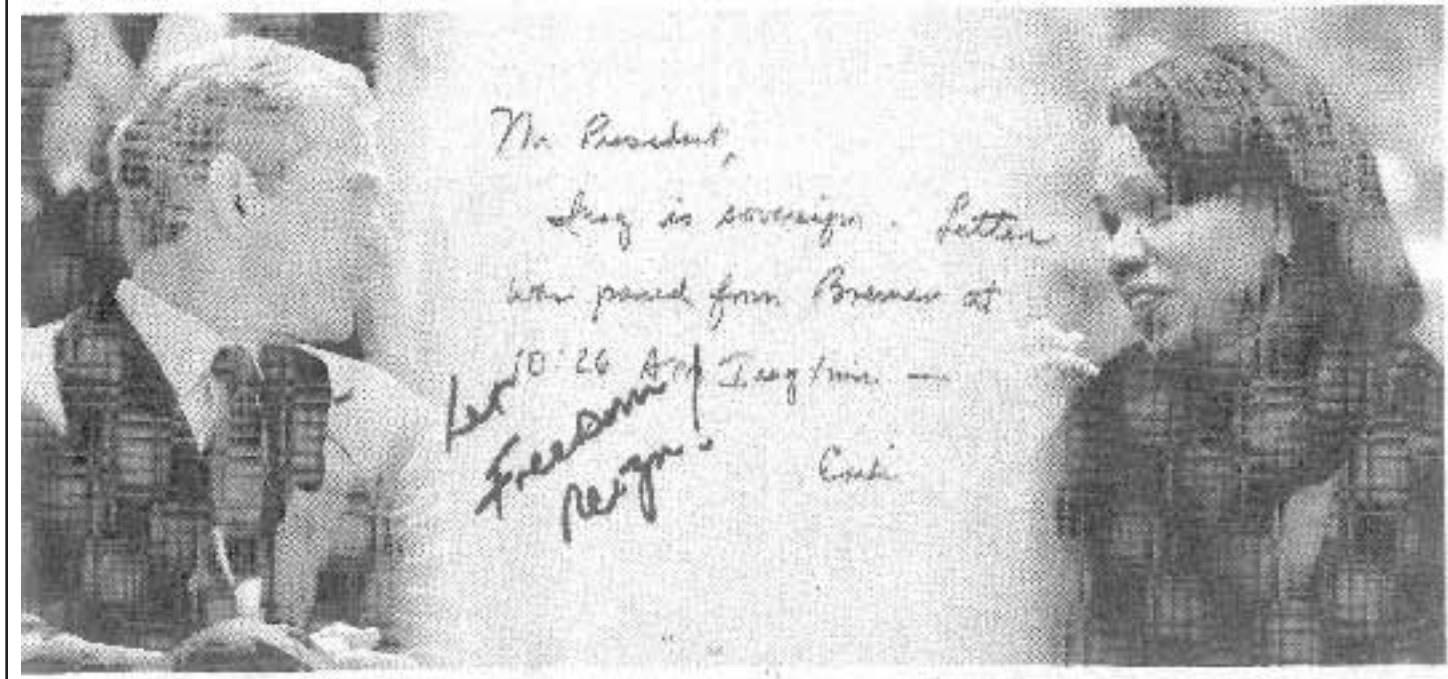 Mr President,
Iraq is sovereign. Letter
was passed from Bremer at
10:26 AM Iraq time —
Let
Freedom
reign!
Condi